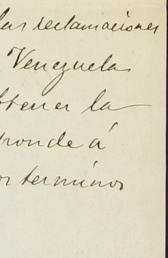 las reclamaciones
Venezuela
btener la
ronde á
os terminos